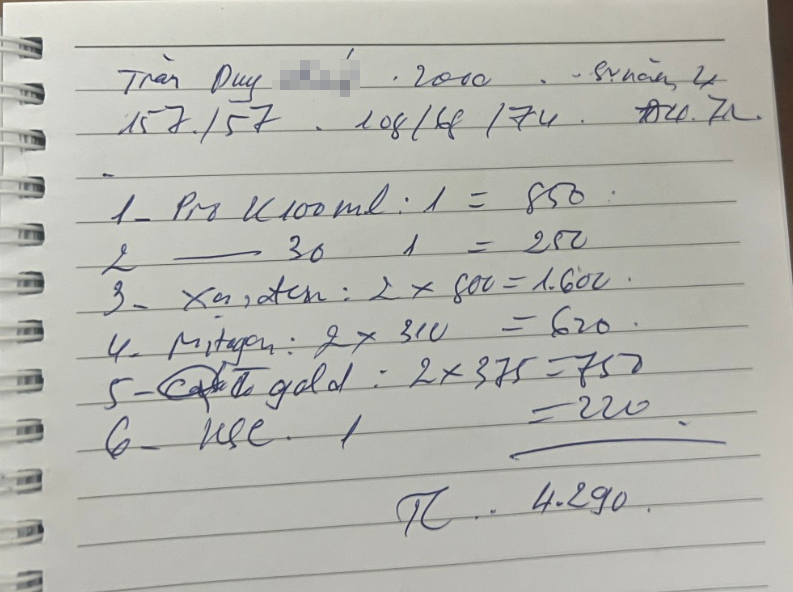 Trần Duy . 2000 .
157./57 . 108/68 /74 .
1- Pro K 100ml : 1 = 850 .
2 —— 30 1 = 250
3- : 2 × 800 = 1.600 .
4- Mitagen : 2 × 310 = 620 .
5- gold : 2 × 375 = 750
6- 1 = 220 .
4.290 .